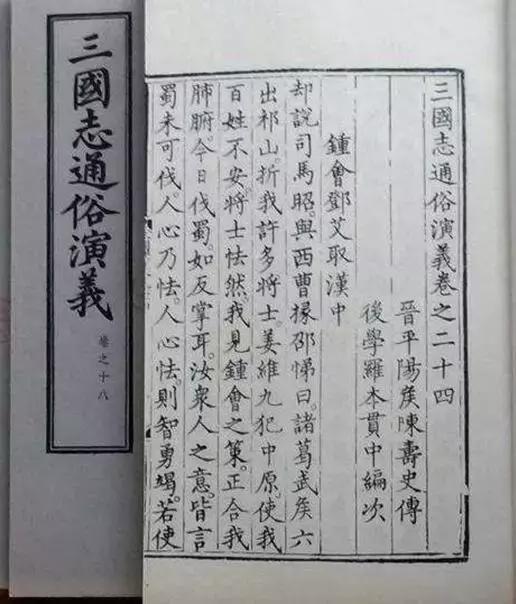 三國志通俗演義
卷之十八
三國志通俗演義卷之二十四
晉平陽矦陳壽史傳
後學羅本貫中編次
鍾會鄧艾取漢中
却說司馬昭。與西曹掾邵悌曰。諸葛武矦六
出祁山。折我許多將士。姜維九犯中原。使我
百姓不安。將士怯然。我見鍾會之策。正合我
肺腑。今日伐蜀。如反掌耳。汝衆人之意。皆言
蜀未可伐。人心乃怯。人心怯。則智勇竭。若使